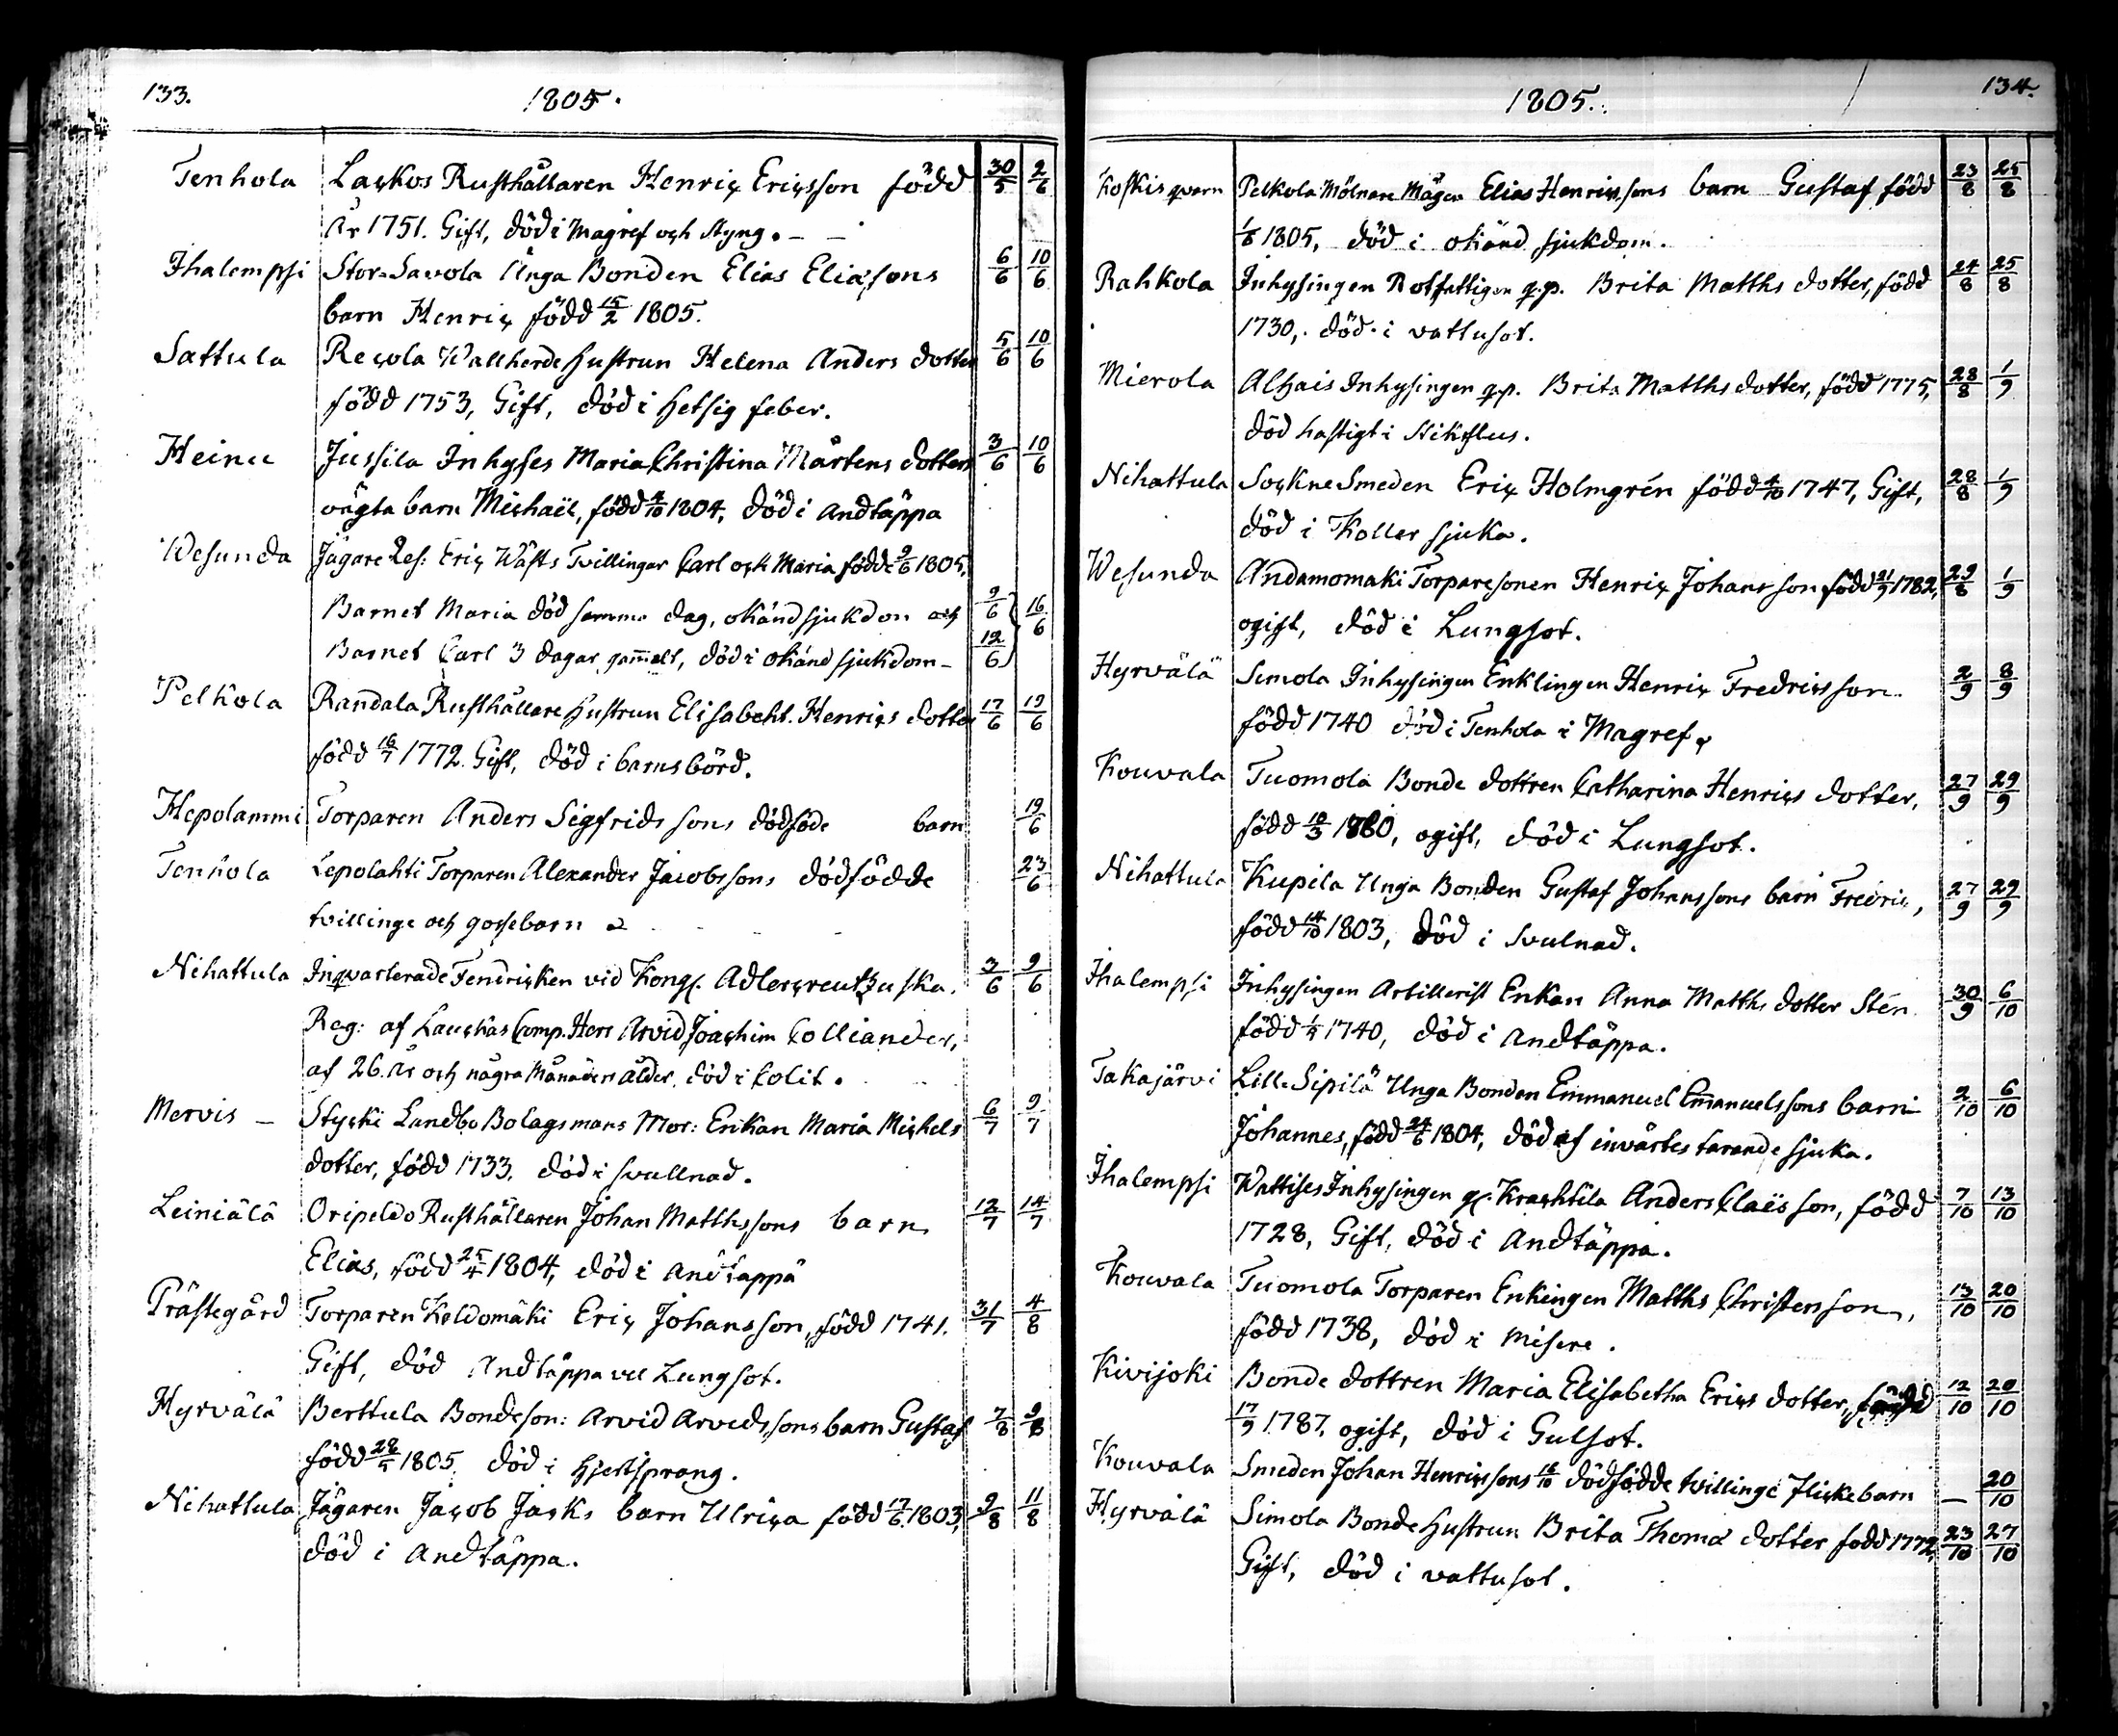 133.
1805.
Tenhola Lackos Rusthållaren Henric Ericsson född 30/5 2/6
År 1751. Gift, död i Magref och styng.
Ihalempsi Stor-Savola Unga Bonden Elias Eliæsons 6/6 10/6
barn Henric född 15/2 1805.
Sattula Recola Wallherde hustrun Helena Anders dotter 5/6 10/6
född 1753, Gift, död i hetsig feber.
Heinu Jussila Inhyses Maria Christina Mårtens dotters 3/6 10/6
oägta barn Michaël, född 4/10 1804, död i andtäppa
Wesunda Jägare Res: Eric Wäfts Tvillingar Carl och Maria födde 9/6 1805.
Barnet Maria död samma dag, okänd sjukdom och 9/6 16/6
Barnet Carl 3 dagar gammalt, död i okänd sjukdom - 12/6
Pelkola Randala Rusthållare hustrun Elisabeht. Henrics dotter 17/6 19/6
född 16/7 1772. Gift, död i barnsbörd.
Hepolammi Torparen Anders Sigfrids sons dödföde barn 19/6
Tenhola Lepolahti Torparen Alexander Jacobssons dödfödde 23/6
tvillinge och gossebarn 2
Nihattula Inqvarterade Fendricken vid Kongl. Adlercreutzuska. 3/6 9/6
Reg: af Lauckas Comp. Herr Arvid Joachim Colliander,
af 26. År och några Månaders ålder, död i Colik.
Mervis - Stycki Landbo Bolagsmans Mor: Enkan Maria Michels 6/7 9/7
dotter, född 1733, död i svullnad.
Leiniälä Oripeldo Rusthållaren Johan Matthssons barn 12/7 14/7
Elias, född 25/4 1804, död i andtäppa
Prästegård Torparen Keldomäki Eric Johansson, född 1741. 31/7 4/8
Gift, död Andtäppa vel Lungsot.
Hyrvälä Berttula Bondeson: Arvid Arvidssons barn Gustaf 7/8 9/8
född 28/5 1805. död i hjertsprang.
Nihattula Jägaren Jacob Jasks barn Ulrica född 17/6 1803, 9/8 11/8
död i andtäppa.
134.
1805.
Koskis qvarn Pelkola Mölnare Mågen Elias Henricssons barn Gustaf född 23/8 25/8
1/8 1805, död i okänd sjukdom.
Rahkola Inhysingen Rotfattigen q.p. Brita Matths dotter, född 24/8 25/8
1730, död i vattusot.
Mierola Alhais Inhysingen q.p. Brita Matths dotter, född 1775, 28/8 1/9
död hastigt i Stikflus.
Nihattula Sockne Smeden Eric Holmgrén född 4/10 1747, Gift, 28/8 1/9
död i Koller sjuka.
Wesunda Andamomaki Torparesonen Henric Johans son född 21/9 1782, 29/8 1/9
ogift, död i Lungsot.
Hyrvälä Simola Inhysingen Enklingen Henric Fredricsson. 2/9 8/9
född 1740 död i Tenhola i Magref
Kouvala Tuomola Bonde dottren Catharina Henrics dotter, 27/9 29/9
född 12/3 1780, ogift, död i Lungsot.
Nihattula Kupila Unga Bonden Gustaf Johanssons barn Fredric, 27/9 29/9
född 14/10 1803, död i svulnad.
Ihalempsi Inhysingen Artillerist Enkan Anna Matths dotter Stén 30/9 6/10
född 1/4 1740, död i andtäppa.
Takajärvi Lill-Sipilä Unga Bonden Emmanuel Emanuelssons barn 2/10 6/10
Johannes, född 24/6 1804, död af invärtes tarande sjuka.
Ihalempsi Wattises Inhysingen Krachtila Anders Claësson, född 7/10 13/10
1728, Gift, död i Andtäppa.
Kouvala Tuomola Torparen Enkingen Matths Christersson, 13/10 20/10
född 1738, död i Misere.
Kivijoki Bonde dottren Maria Elisabetha Erics dotter, född 12/10 20/10
17/9 1787, ogift, död i Gulsot.
Kouvala Smeden Johan Henricssons 16/10 dödfödde tvillinge flickebarn — 20/10
Hyrvälä Simola Bonde hustrun Brita Thomæ dotter född 1772, 23/10 27/10
Gift, död i vattusot.